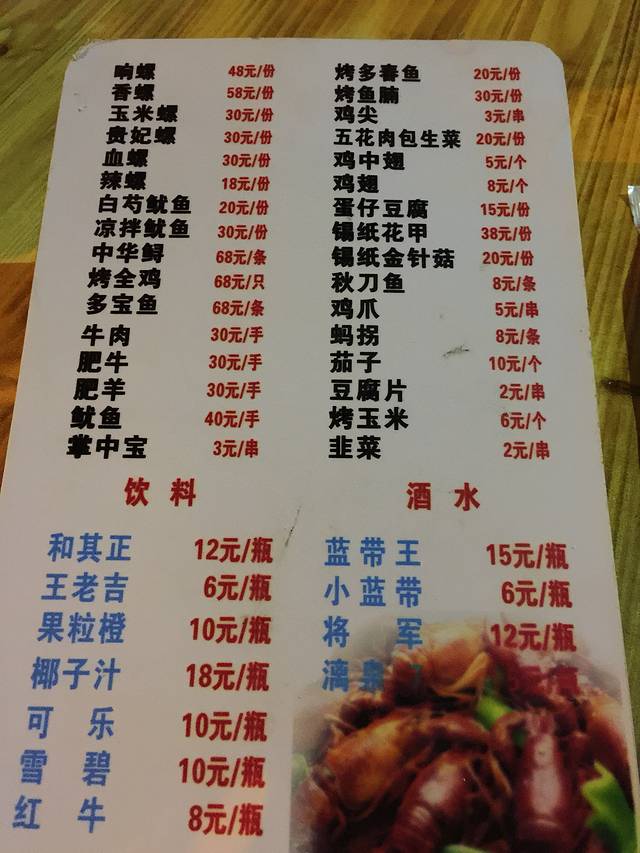 响螺 48元/份
香螺 58元/份
玉米螺 30元/份
贵妃螺 30元/份
血螺 30元/份
辣螺 18元/份
白芍鱿鱼 20元/份
凉拌鱿鱼 30元/份
中华鲟 68元/条
烤全鸡 68元/只
多宝鱼 68元/条
牛肉 30元/手
肥牛 30元/手
肥羊 30元/手
鱿鱼 40元/手
掌中宝 3元/串
烤多春鱼 20元/份
烤鱼腩 30元/份
鸡尖 3元/串
五花肉包生菜 20元/份
鸡中翅 5元/个
鸡翅 8元/个
蛋仔豆腐 15元/份
锡纸花甲 38元/份
锡纸金针菇 20元/份
秋刀鱼 8元/条
鸡爪 5元/串
蚂拐 8元/条
茄子 10元/个
豆腐片 2元/串
烤玉米 6元/个
韭菜 2元/串
饮料
和其正 12元/瓶
王老吉 6元/瓶
果粒橙 10元/瓶
椰子汁 18元/瓶
可乐 10元/瓶
雪碧 10元/瓶
红牛 8元/瓶
酒水
蓝带王 15元/瓶
小蓝带 6元/瓶
将军 12元/瓶
漓泉 元/瓶